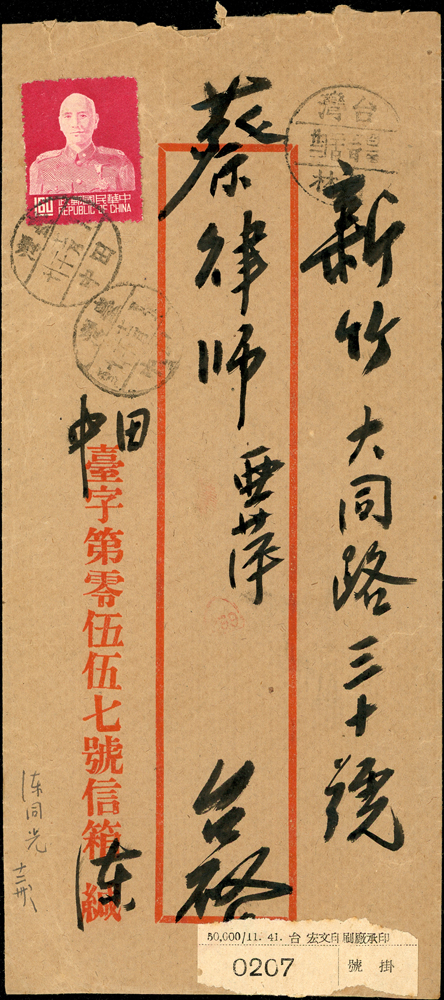 新竹大同路三十號
蔡律師亞萍
台啓
中田
臺字第零伍伍七號信箱
陳
緘
160
政郵國民華中
REPUBLIC OF CHINA
台灣
50,000/11. 41. 台 宏文印刷廠承印
0207
號掛